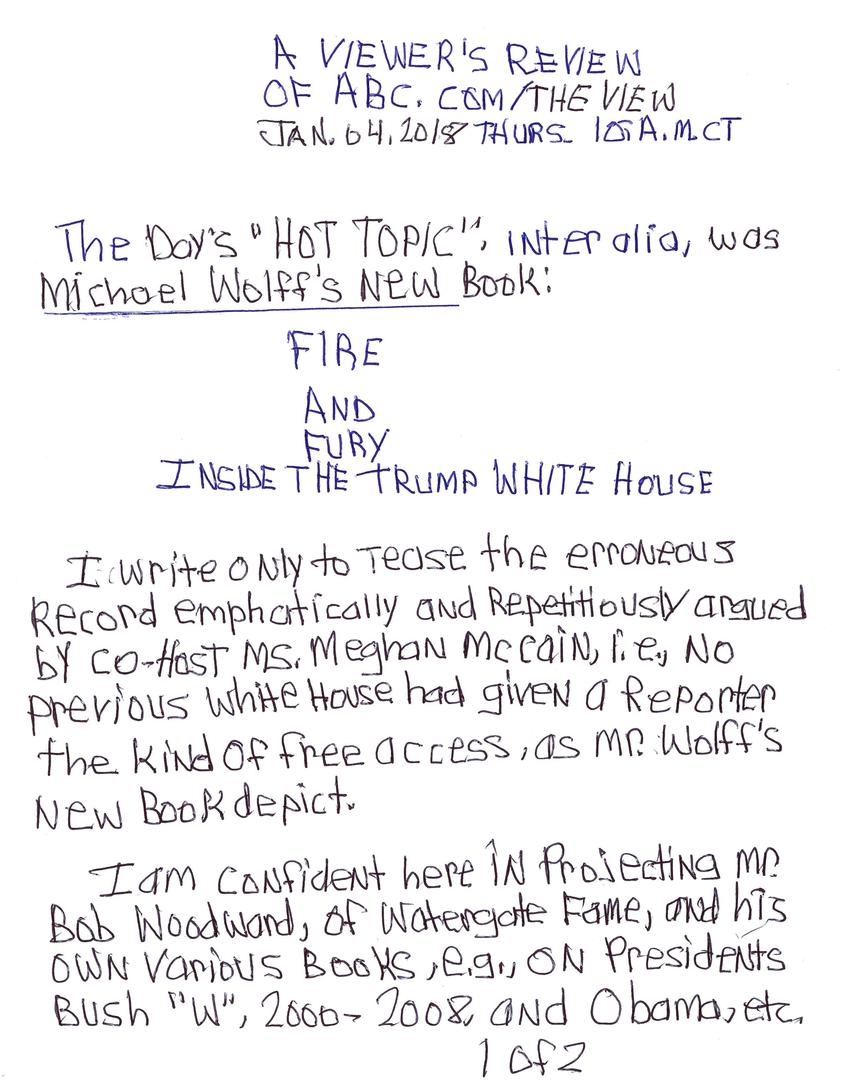 A VIEWER'S REVIEW
OF ABC.COM/THE VIEW
JAN. 04, 2018 THURS. 10A.M.CT
The Day's "HOT TOPIC", inter alia, was
Michael Wolff's New Book:
FIRE
AND
FURY
INSIDE THE TRUMP WHITE HOUSE
I write only to Tease the erroneous
Record emphatically and Repetitiously argued
by co-Host Ms. Meghan McCain, i.e., No
previous White House had given a Reporter
the kind of free access, as Mr. Wolff's
New Book depict.
I am confident here in Projecting Mr.
Bob Woodward, of Watergate Fame, and his
own various Books, e.g., on Presidents
Bush "W", 2000-2008, and Obama, etc.
1 of 2